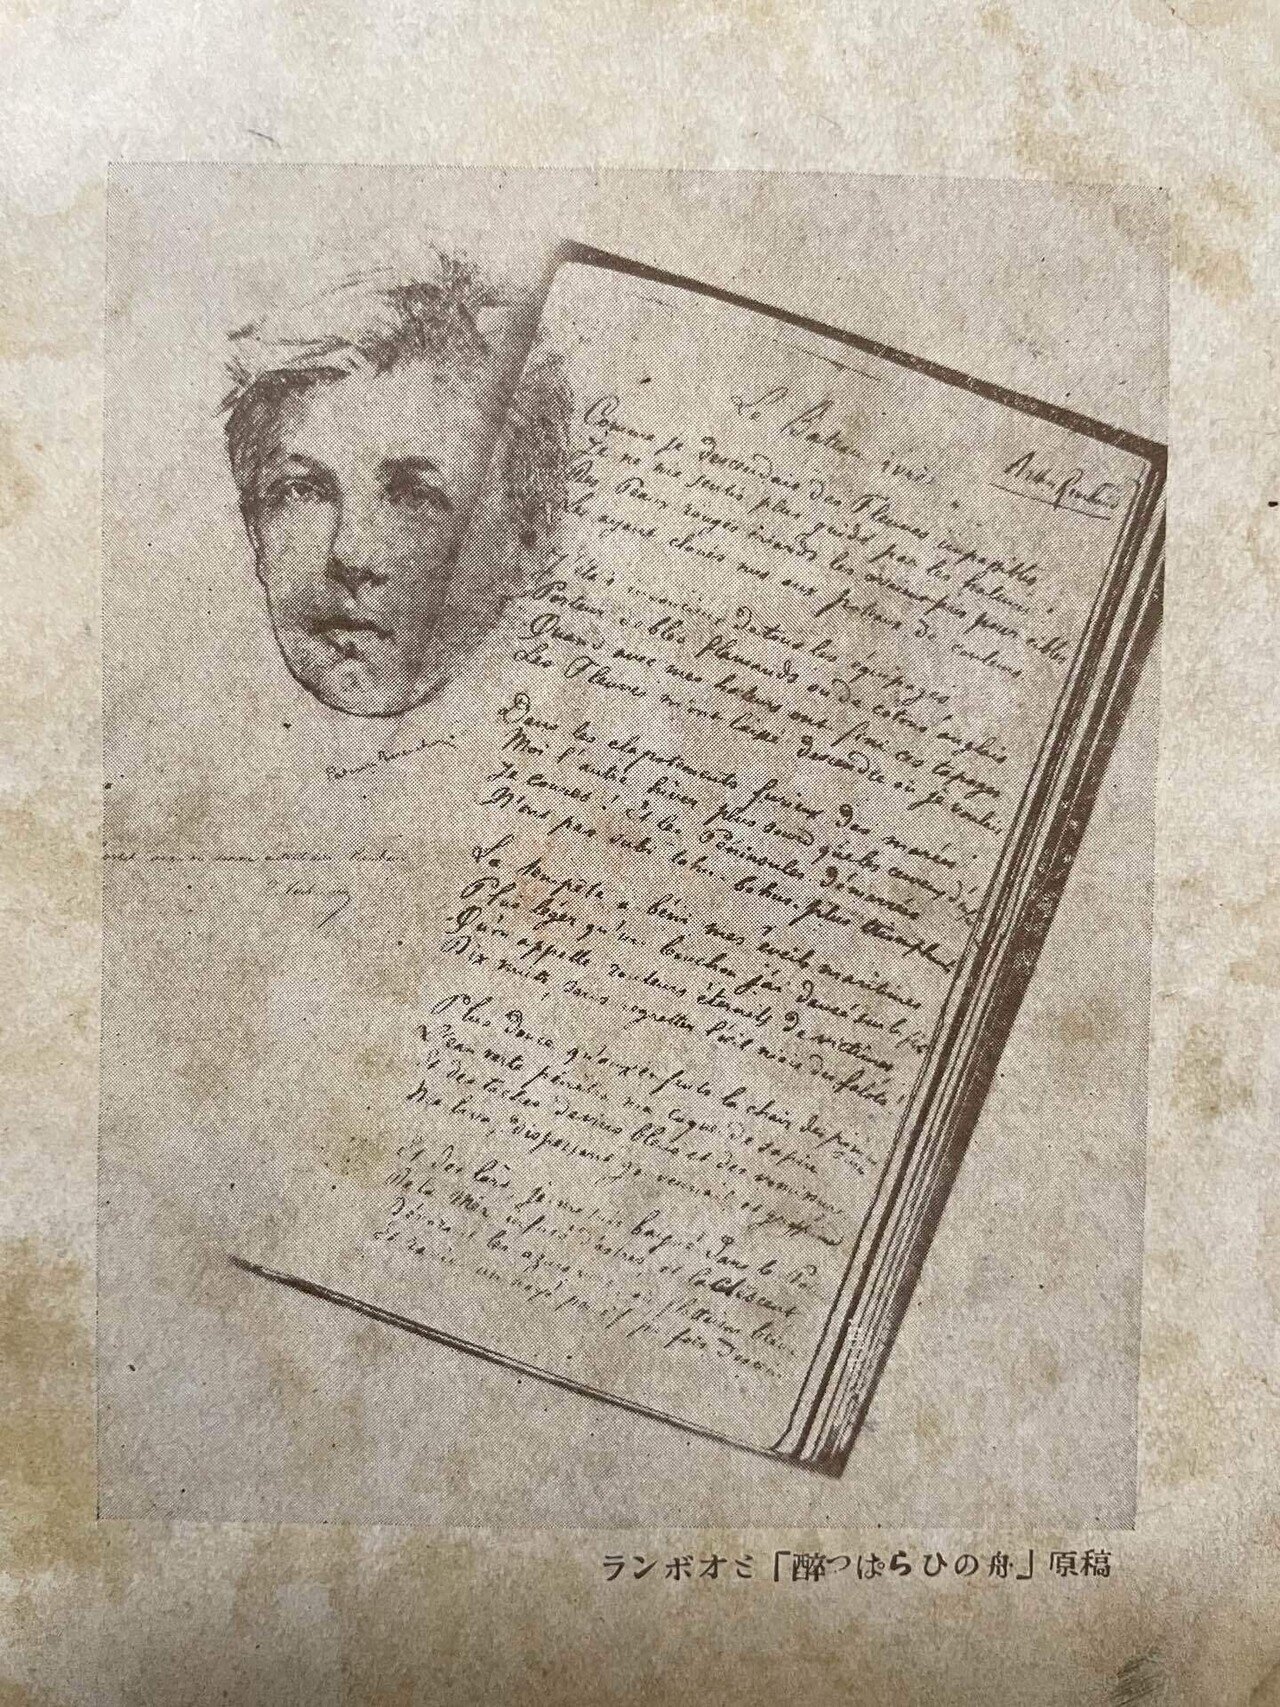 Le Bateau ivre
Arthur Rimbaud
Comme je descendais des Fleuves impassibles
Je ne me sentis plus guidé par les haleurs :
Des Peaux rouges criards les avaient pris pour cibles
Les ayant cloués nus aux poteaux de couleurs
J'étais insoucieux de tous les équipages
Porteur de blés flamands ou de cotons anglais
Quand avec mes haleurs ont fini ces tapages
Les Fleuves m'ont laissé descendre où je voulais
Dans les clapotements furieux des marées
Moi l'autre hiver plus sourd que les cerveaux d'enf
Je courus ! Et les Péninsules démarrées
N'ont pas subi tohu-bohus plus triomphants
La tempête a béni mes éveils maritimes
Plus léger qu'un bouchon j'ai dansé sur les flots
Qu'on appelle rouleurs éternels de victimes
Dix nuits, sans regretter l'œil niais des falots !
Plus douce qu'aux enfants la chair des pommes sures
L'eau verte pénétra ma coque de sapin
Et des taches de vins bleus et des vomissures
Me lava, dispersant gouvernail et grappin
Et dès lors, je me suis baigné dans le Po
De la Mer infusé d'astres et latescent
Dévorant les azurs verts où flottaison blême
Et ravie un noyé pensif parfois descend
ランボオと「醉つぱらひの舟」原稿